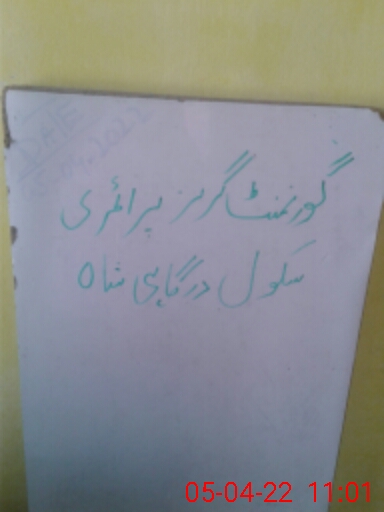 DATE
گورنمنٹ گرلز پرائمری
سکول درگاہی شاہ
05-04-22 11:01